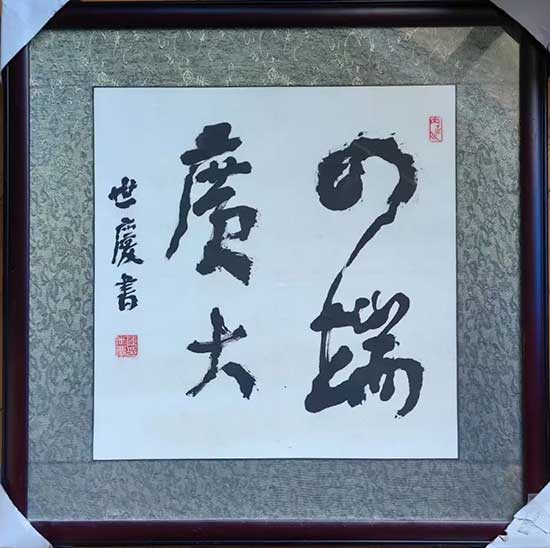 四端
廣大
世慶書